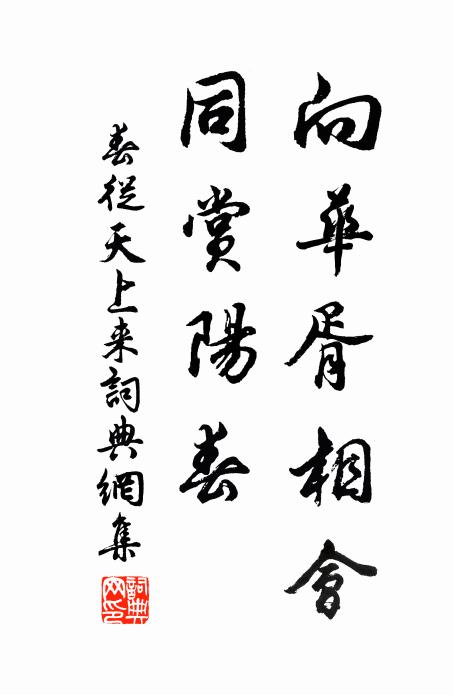 向華胥相會
同賞陽春
春從天上来詞典網集
詞典网印